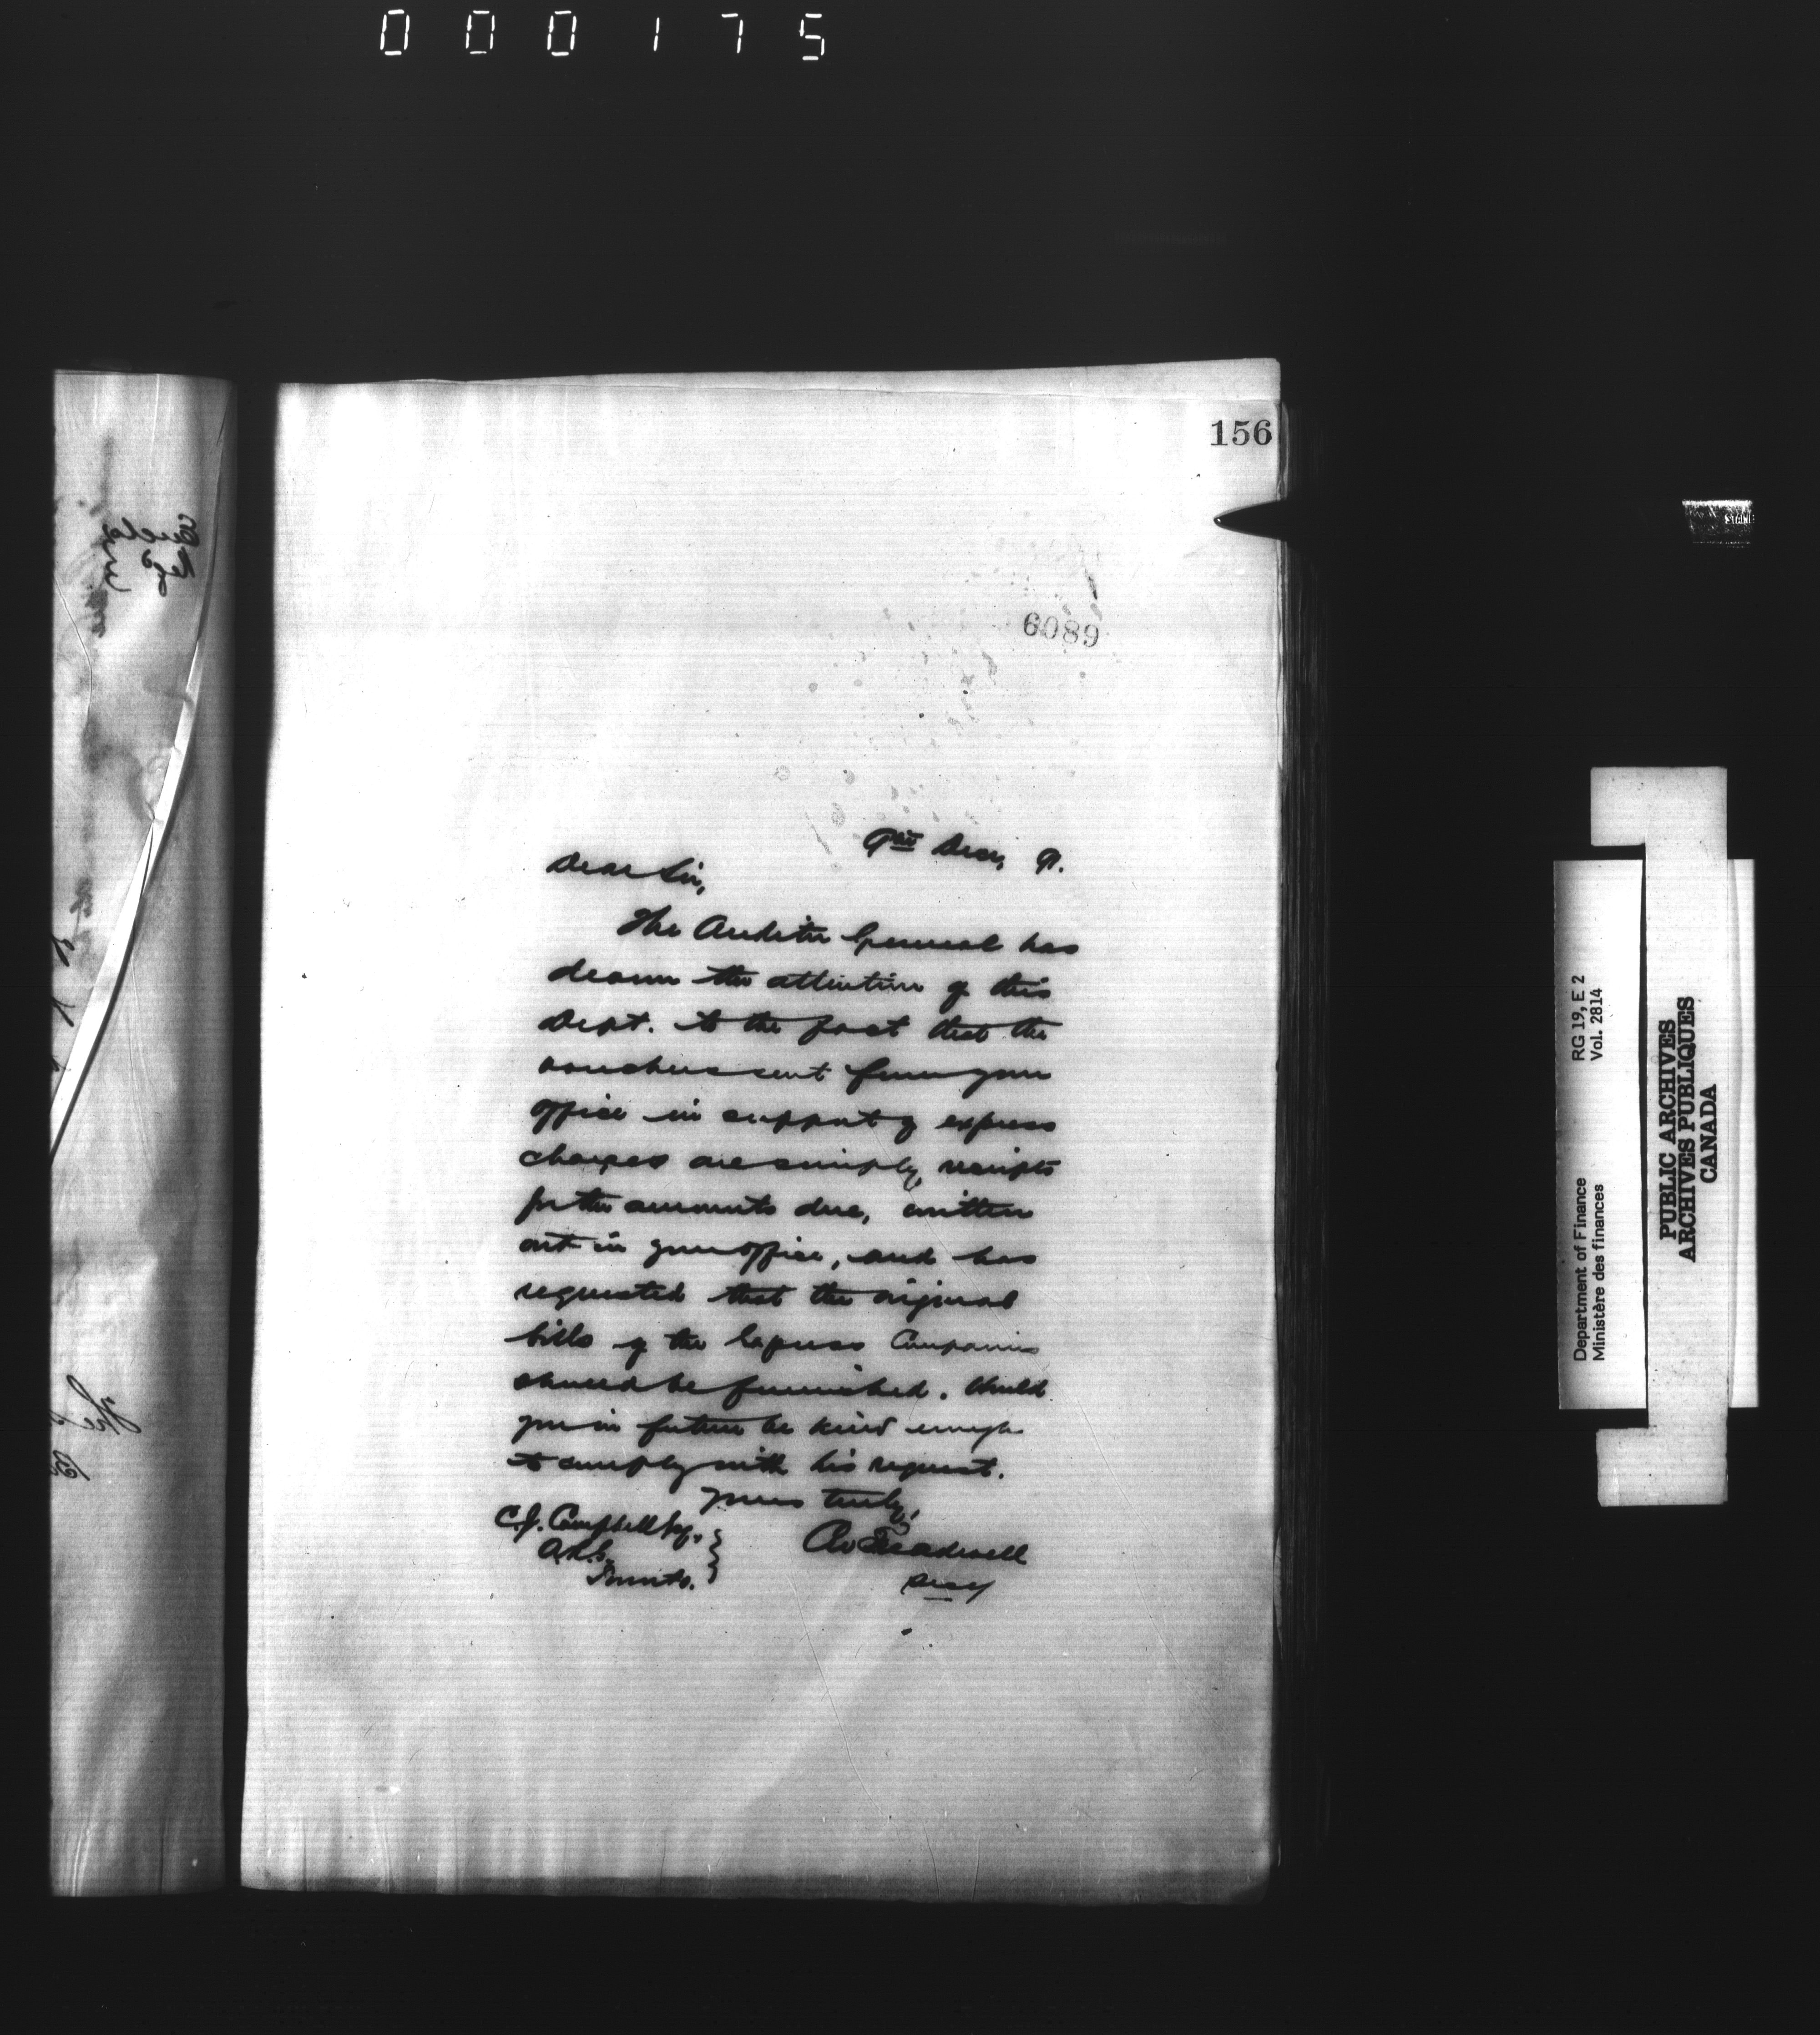 000175
156
6089
9th Decr, 9.
Dear Sir,
The Auditor General has
drawn the attention of this
Dept. to the fact that the
vouchers sent from your
office in support of express
charges are simply receipts
for the amounts due, written
out in your office, and has
requested that the original
bills of the Express Companies
should be furnished. Would
you in future be kind enough
to comply with his request.
Yours truly,
C.J. Campbell Esq.,
A.R.G.
Toronto.
Treadwell
Secy
Department of Finance RG 19, E 2
Ministère des finances Vol. 2814
PUBLIC ARCHIVES
ARCHIVES PUBLIQUES
CANADA